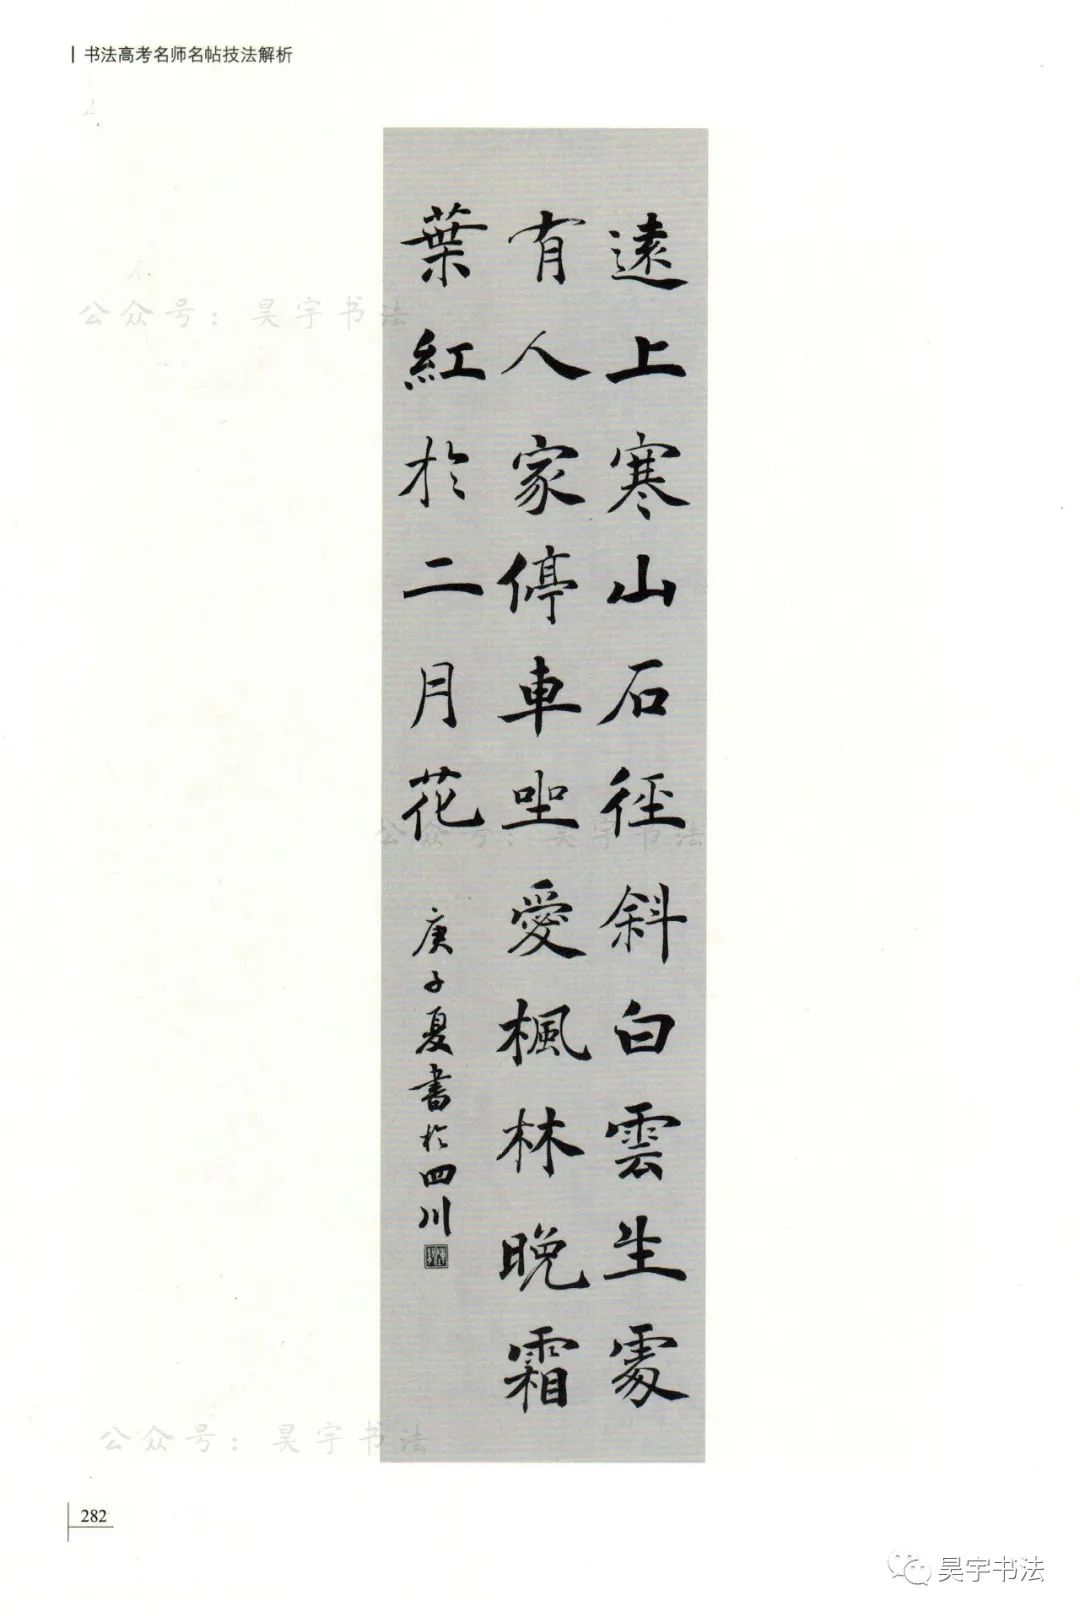 书法高考名师名帖技法解析
遠上寒山石徑斜白雲生處
有人家停車坐愛楓林晚霜
葉紅於二月花
庚子夏書於四川
公众号：昊宇书法
公众号：昊宇书法
公众号：昊宇书法
282
昊宇书法